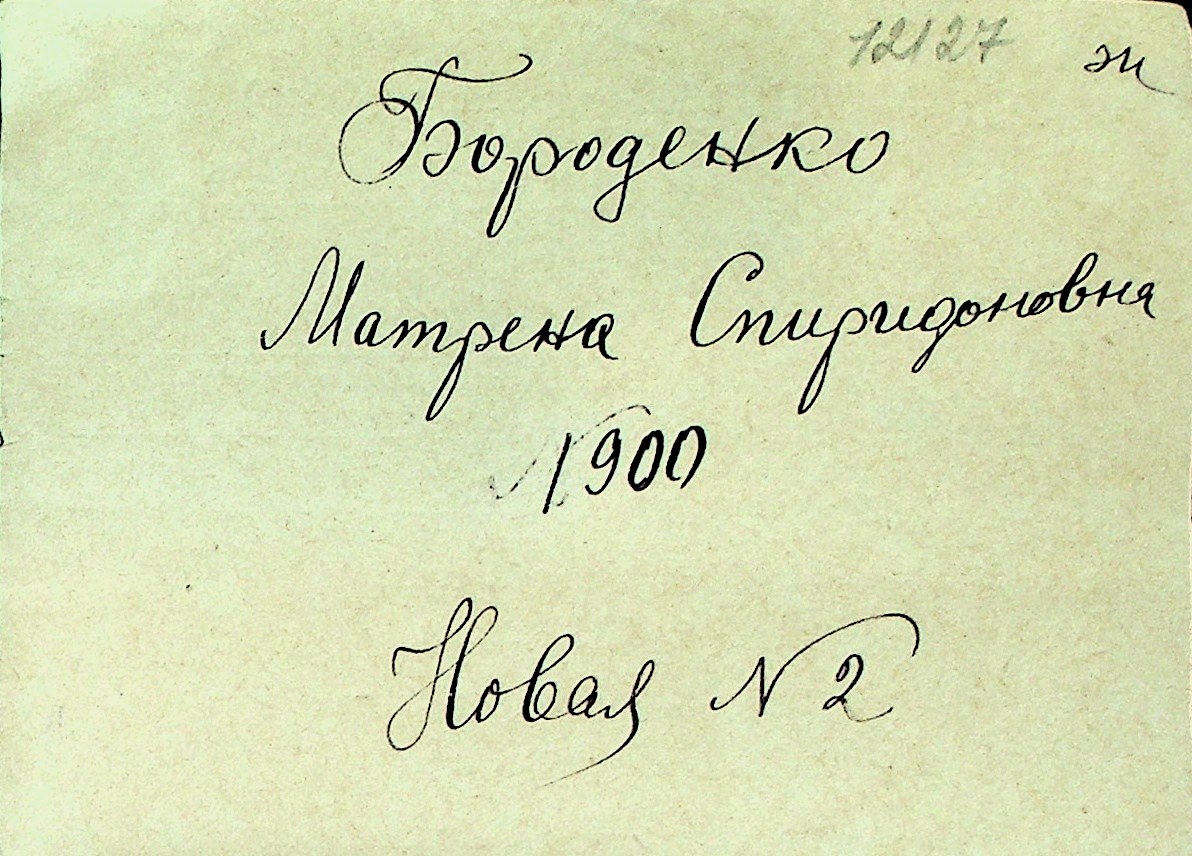 12127 эи
Бороденко
Матрена Спиридоновна
1900
Новая № 2